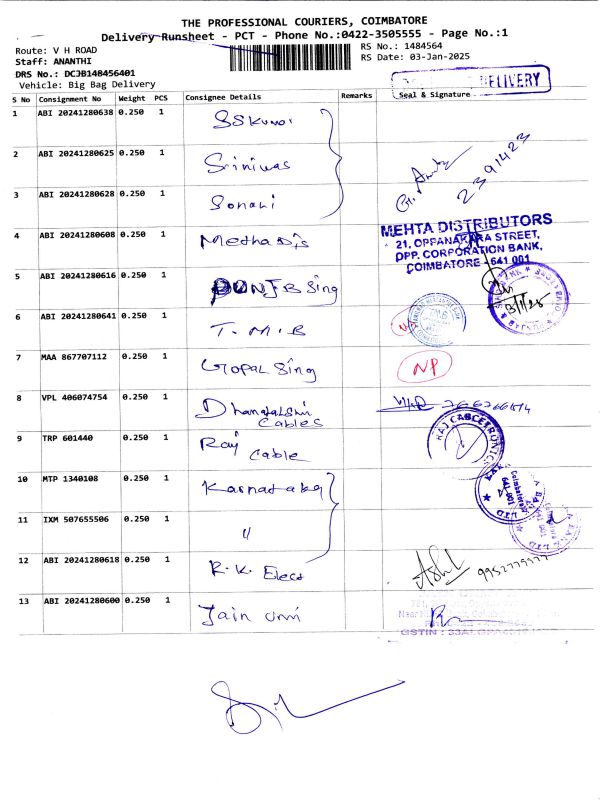 THE PROFESSIONAL COURIERS, COIMBATORE
Delivery Runsheet - PCT - Phone No.:0422-3505555 - Page No.:1
Route: V H ROAD
RS No.: 1484564
Staff: ANANTHI
RS Date: 03-Jan-2025
DRS No.: DCJB148456401
Vehicle: Big Bag Delivery
DELIVERY
S No Consignment No Weight PCS Consignee Details Remarks Seal & Signature
1 ABI 20241280638 0.250 1 SSKumar
2 ABI 20241280625 0.250 1 Srinivas
2391423
3 ABI 20241280628 0.250 1 Sonani
4 ABI 20241280608 0.250 1 Metha Dis
MEHTA DISTRIBUTORS
21, OPPANAKARA STREET,
OPP. CORPORATION BANK,
COIMBATORE - 641 001
5 ABI 20241280616 0.250 1 PUNJB Sing
3/1/25
6 ABI 20241280641 0.250 1 T.M.B
7 MAA 867707112 0.250 1 Gopal Sing
NP
8 VPL 406074754 0.250 1 Dhanalakshi
Cables
9 TRP 601440 0.250 1 Raj Cable
RAJ CABCETRONICS
10 MTP 1340108 0.250 1 Karnataka
Coimbatore
641 001
11 IXM 507655506 0.250 1 "
12 ABI 20241280618 0.250 1 R.K. Elect
13 ABI 20241280600 0.250 1 Jain Uni
GSTIN :